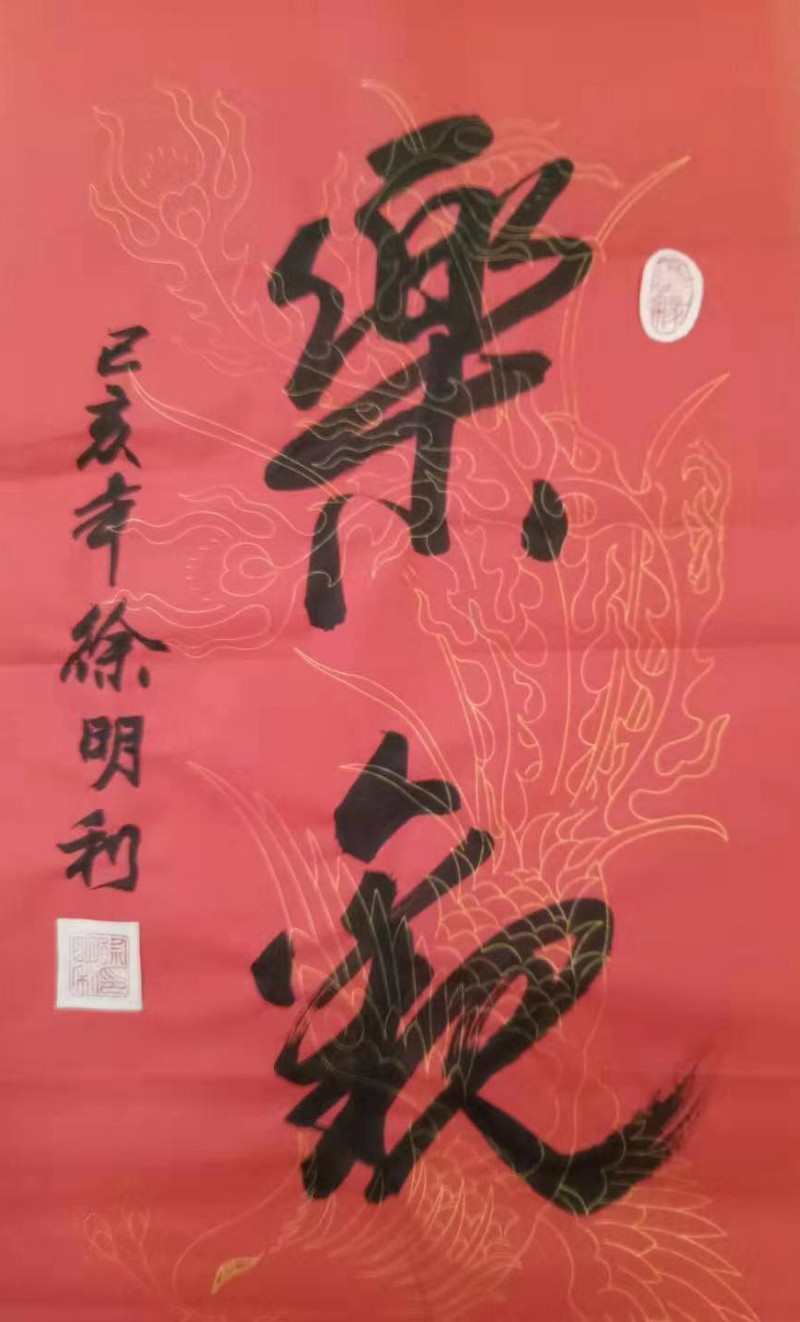 樂觀
己亥年徐明利